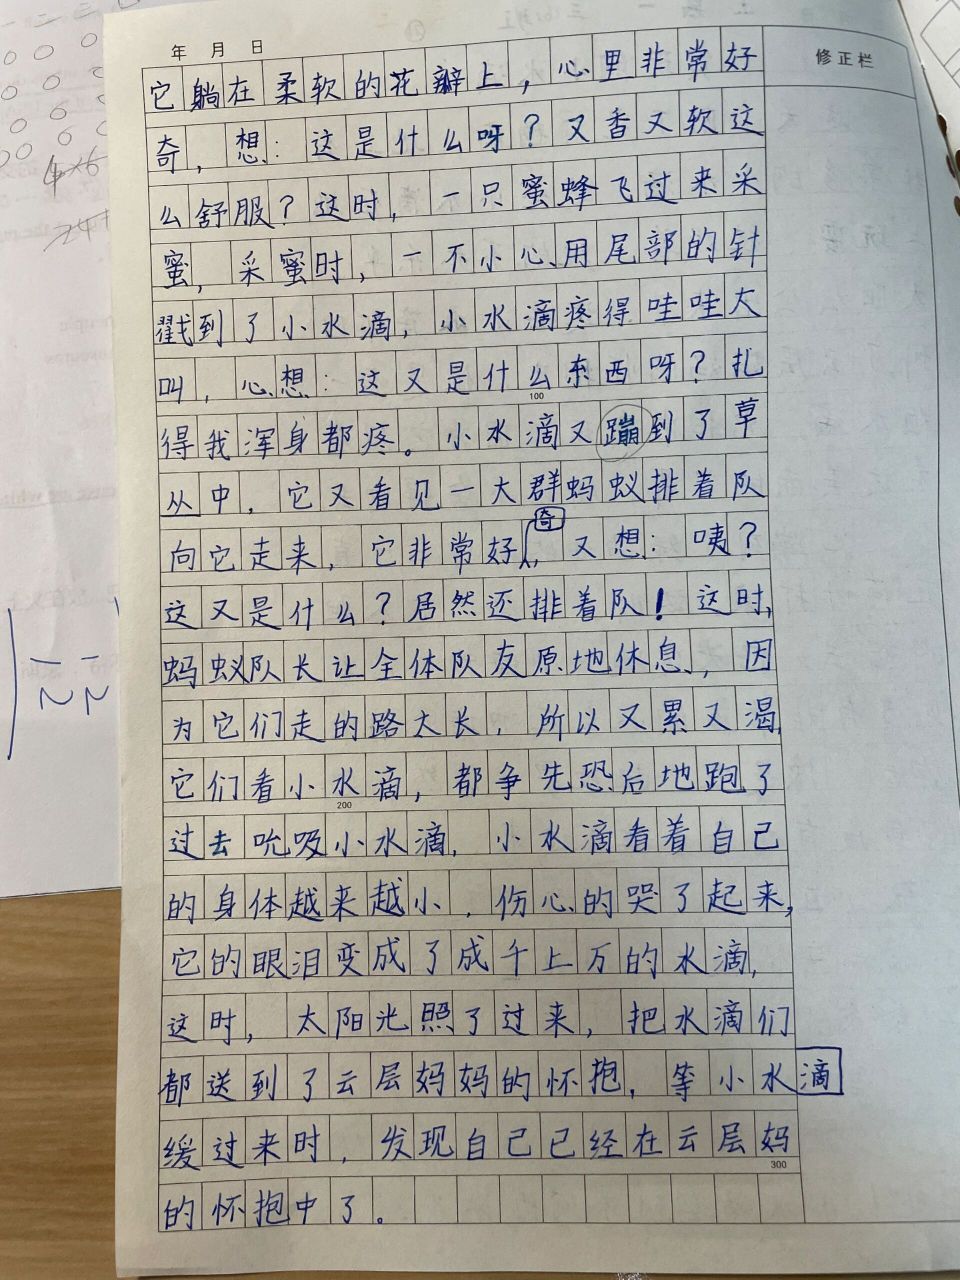 年 月 日
修正栏
它躺在柔软的花瓣上，心里非常好
奇，想：这是什么呀？又香又软这
么舒服？这时，一只蜜蜂飞过来采
蜜，采蜜时，一不小心用尾部的针
戳到了小水滴，小水滴疼得哇哇大
叫，心想：这又是什么东西呀？扎
100
得我浑身都疼。小水滴又蹦到了草
从中，它又看见一大群蚂蚁排着队
向它走来，它非常好奇，又想：咦？
这又是什么？居然还排着队！这时，
蚂蚁队长让全体队友原地休息，因
为它们走的路太长，所以又累又渴，
它们看小水滴，都争先恐后地跑了
200
过去吮吸小水滴，小水滴看着自己
的身体越来越小，伤心的哭了起来，
它的眼泪变成了成千上万的水滴，
这时，太阳光照了过来，把水滴们
都送到了云层妈妈的怀抱，等小水滴
缓过来时，发现自己已经在云层妈
300
的怀抱中了。